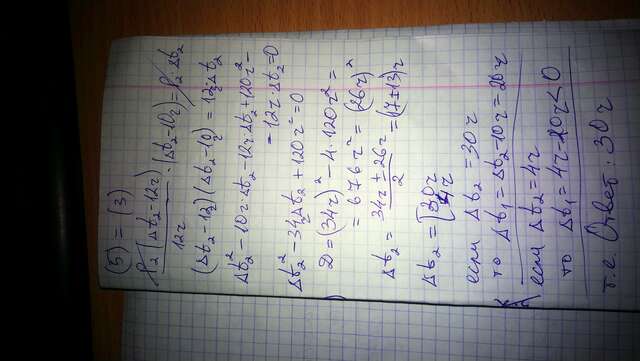 (5) = (3)
P₂(Δt₂-12ч)/12ч · (Δt₂-10ч) = P₂ Δt₂
(Δt₂-12ч)(Δt₂-10ч) = 12ч Δt₂
Δt₂² - 10ч·Δt₂ - 12ч·Δt₂ + 120ч² -
- 12ч·Δt₂ = 0
Δt₂² - 34ч Δt₂ + 120ч² = 0
D = (34ч)² - 4·120ч² =
= 676ч² = (26ч)²
Δt₂ = (34ч ± 26ч)/2 = (17±13)ч
Δt₂ = [30ч
4ч
если Δt₂ = 30ч
то Δt₁ = Δt₂-10ч = 20ч
если Δt₂ = 4ч
то Δt₁ = 4ч-10ч < 0
т.е. Ответ: 30ч